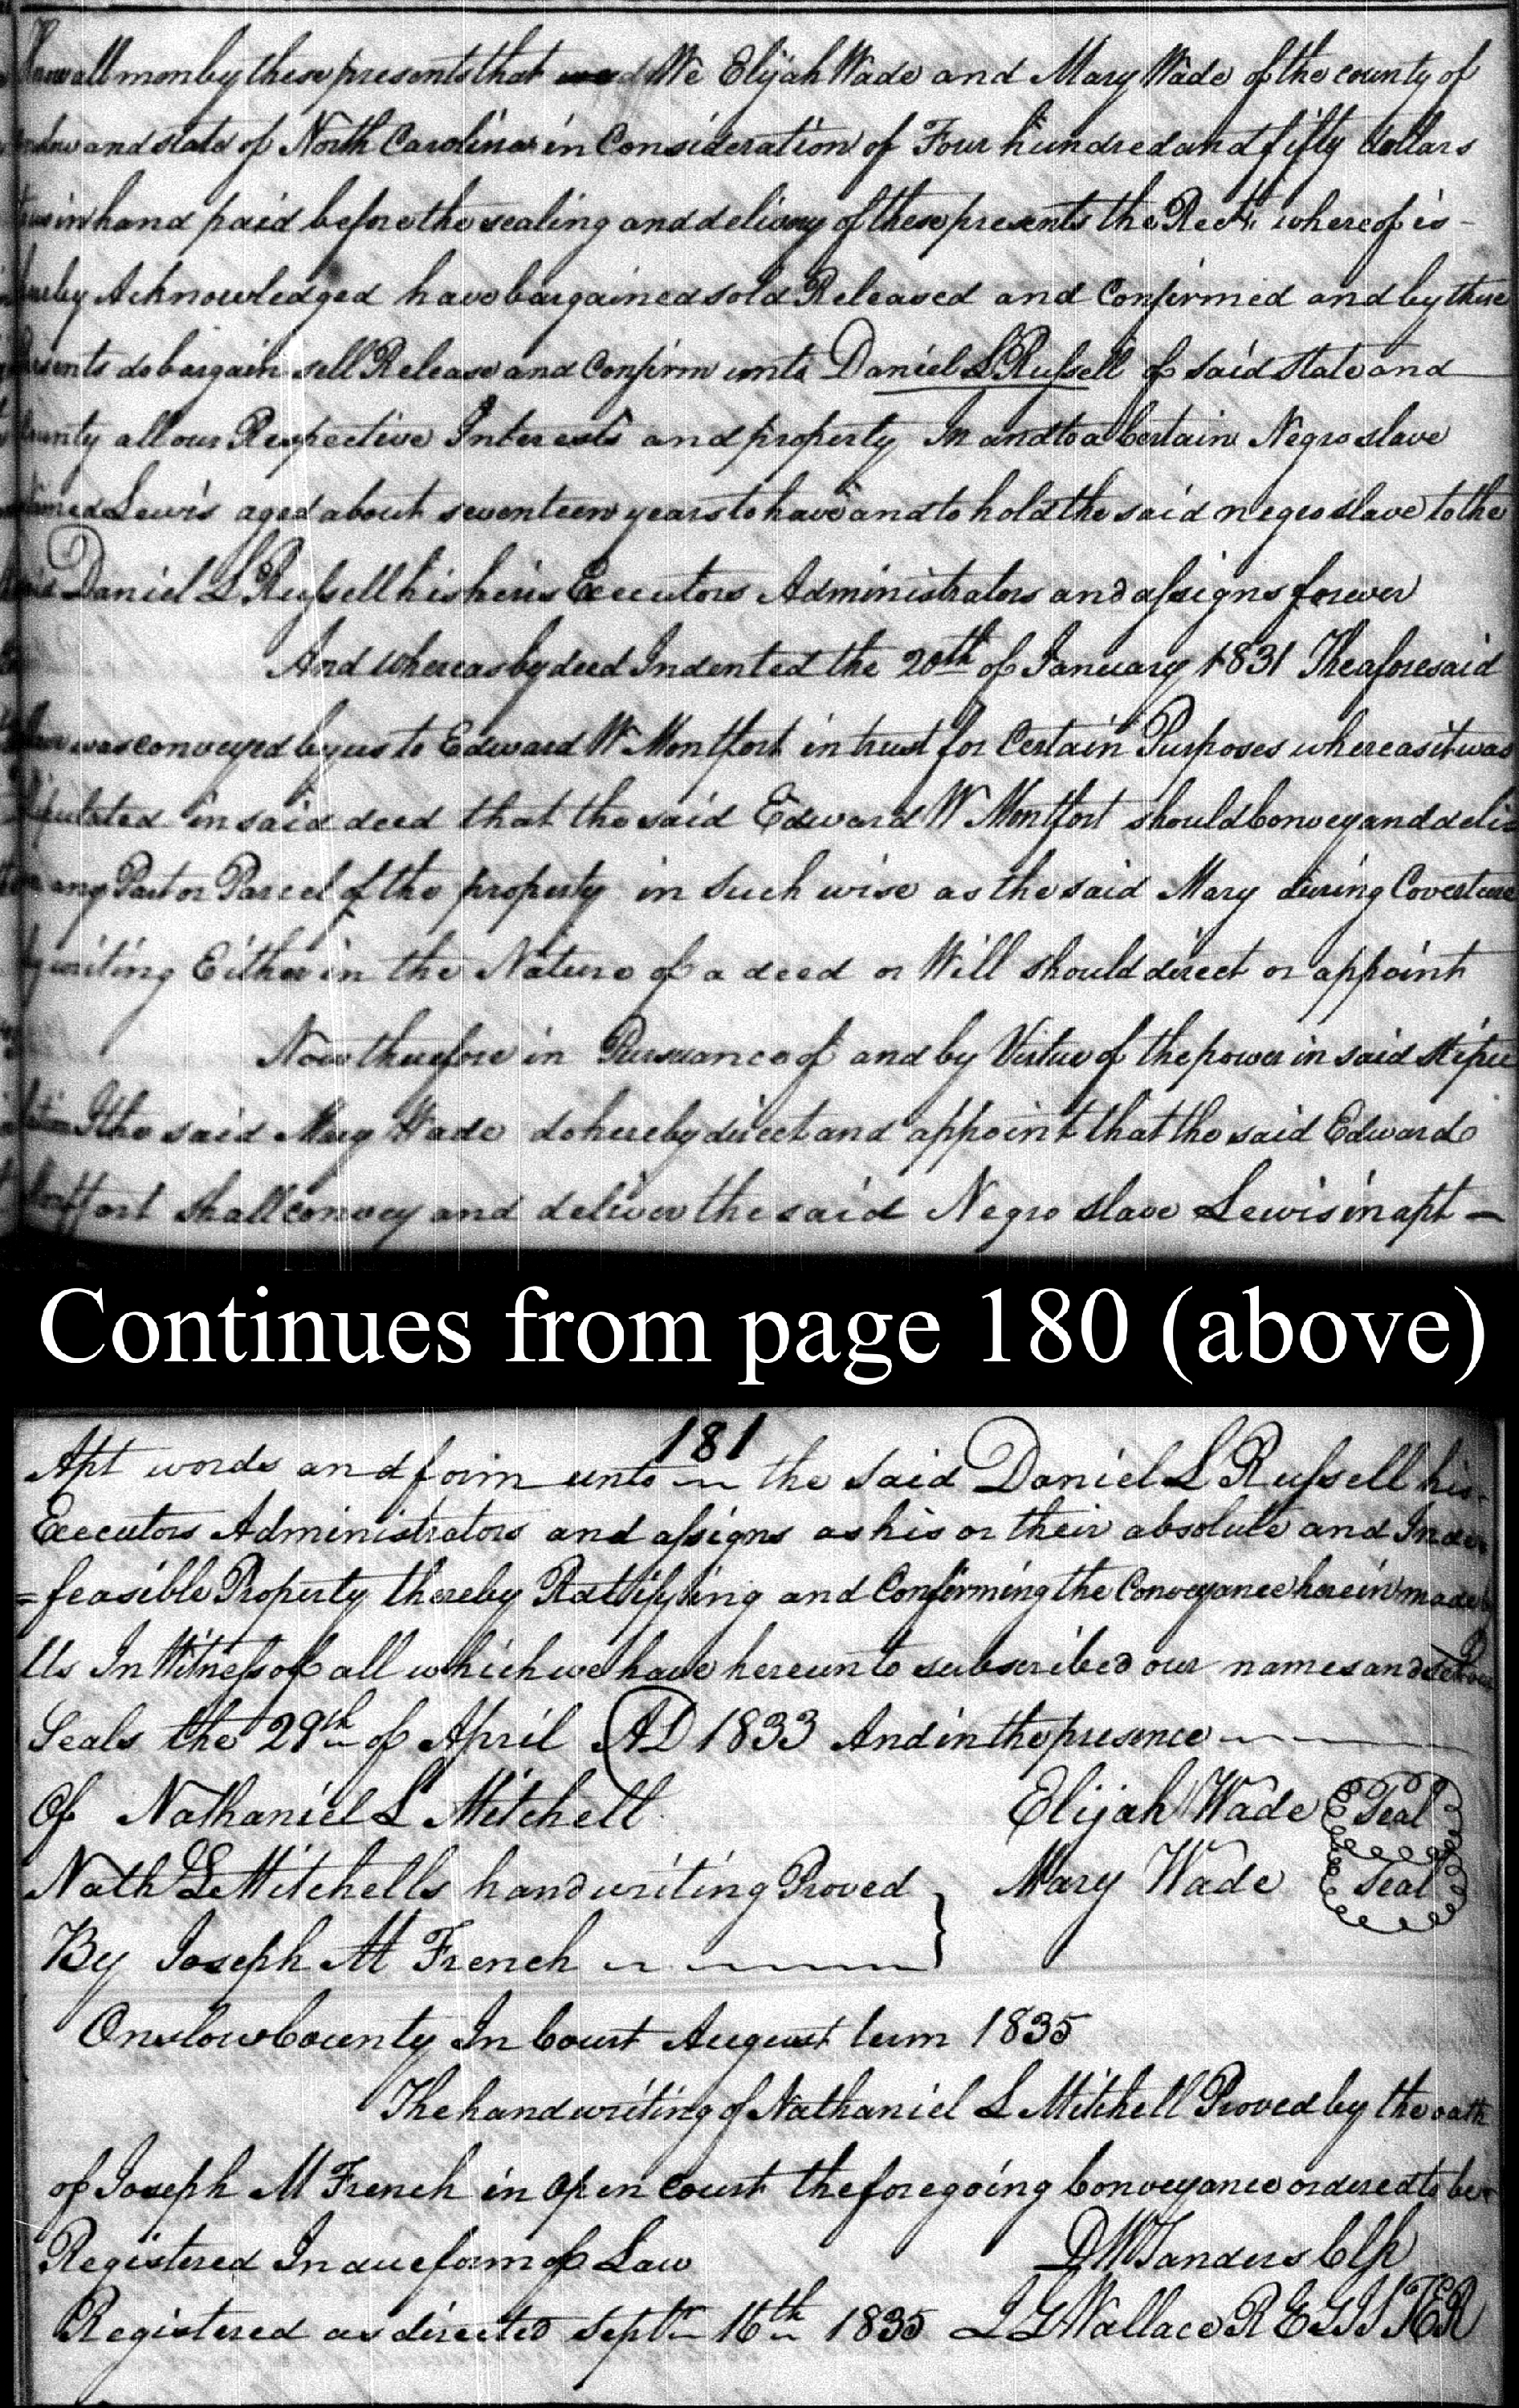 Know all men by these presents that We Elijah Wade and Mary Wade of the county of
and state of North Carolina in Consideration of Four hundred and fifty dollars
in hand paid before the sealing and delivery of these presents the Rect. whereof is -
hereby Acknowledged have bargained sold Released and Confirmed and by these
presents do bargain sell Release and Confirm unto Daniel L Russell of said State and
County all our Respective Interests and property In and to a Certain Negro slave
named Lewis aged about seventeen years to have and to hold the said negro slave to the
said Daniel L Russell his heirs Executors Administrators and assigns forever
And whereas by deed Indented the 20th of January 1831 The aforesaid
was conveyed by us to Edward W Montfort in trust for Certain Purposes whereas it was
stipulated in said deed that the said Edward W Montfort should Convey and deliv
any Part or Parcel of the property in such wise as the said Mary during Coverture
by writing Either in the Nature of a deed or Will should direct or appoint
Now therefore in Pursuance of and by Virtue of the power in said stipu
lation I the said Mary Wade do hereby direct and appoint that the said Edward
Montfort shall convey and deliver the said Negro slave Lewis in apt -
Continues from page 180 (above)
181
Apt words and form unto the said Daniel L Russell his
Executors Administrators and assigns as his or their absolute and Inde
=feasible Property thereby Ratifying and Confirming the Conveyance herein made by
Us In Witness of all which we have hereunto subscribed our names and set our
Seals the 29th of April AD 1833 And in the presence
Of Nathaniel L Mitchell Elijah Wade Seal
Nath L Mitchells handwriting Proved } Mary Wade Seal
By Joseph M French
Onslow County In Court August term 1835
The handwriting of Nathaniel L Mitchell Proved by the oath
of Joseph M French in Open Court the foregoing Conveyance ordered to be
Registered In due form of Law D W Sanders Clk
Registered as directed Septr 16th 1835 L G Wallace REGISTER